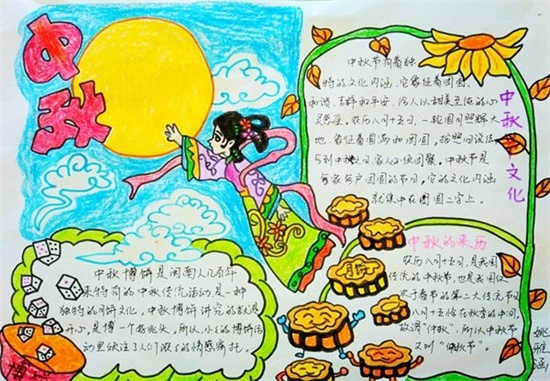 中秋
中秋节有着独
特的文化内涵，它象征着团圆、
和谐、吉祥和平安，给人以甜美至纯的心
灵感应。农历八月十五日，一轮圆月照耀大
地，象征着圆满和团圆，按照旧说法
中秋之日，家人必须团聚。中秋节是
每家每户团圆的节日，它的文化内涵
就集中在团圆二字上。
中秋文化
中秋的来历
农历八月十五日，是我国
传统的中秋节，也是我国仅
次于春节的第二大传统节日
八月十五恰在秋季的中间，
故谓“仲秋”，所以中秋节
又叫“仲秋节”。
中秋博饼是闽南人几百年
来特有的中秋传统活动，是一种
独特的月饼文化。中秋博饼讲究的就是
开心，是博一个好兆头。所以，小小的博饼活
动里倾注了人们浓浓的情感寄托。
博
姚雅涵